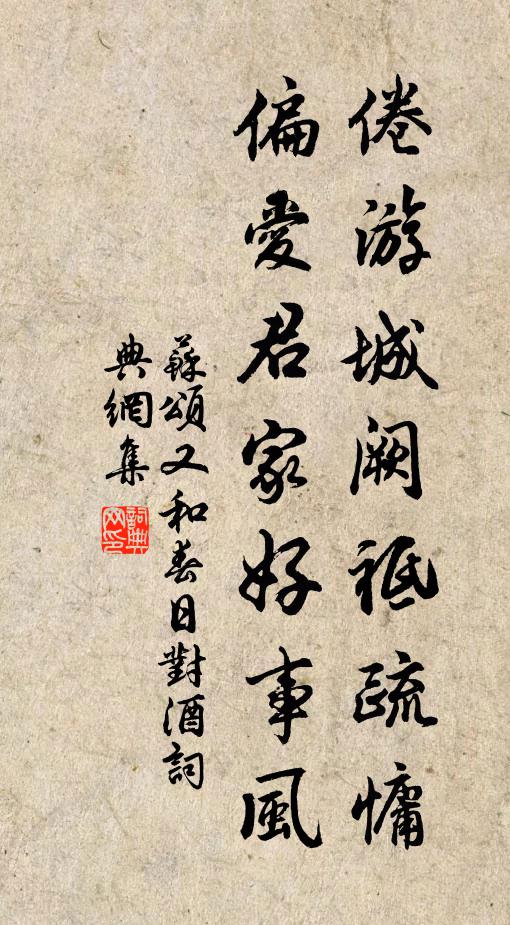 倦游城阙祗疏慵
偏愛君家好事風
蘇頌又和春日對酒詞
典網集
詞典网印